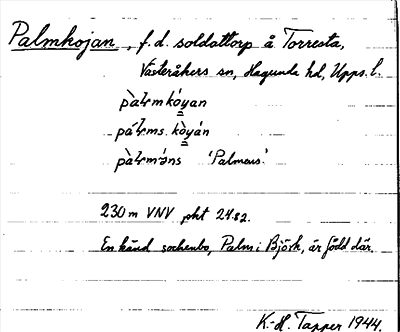 Palmkojan, f.d. soldattorp å Torresta,
Västeråkers sn, Hagunda hd, Upps. l.
pàłmkóyan
páłms. kòyán
pàłmə́ns 'Palmens'
230 m VNV pkt 24.82.
En känd sockenbo, Palm i Björk, är född där.
K.-H. Tapper 1944.